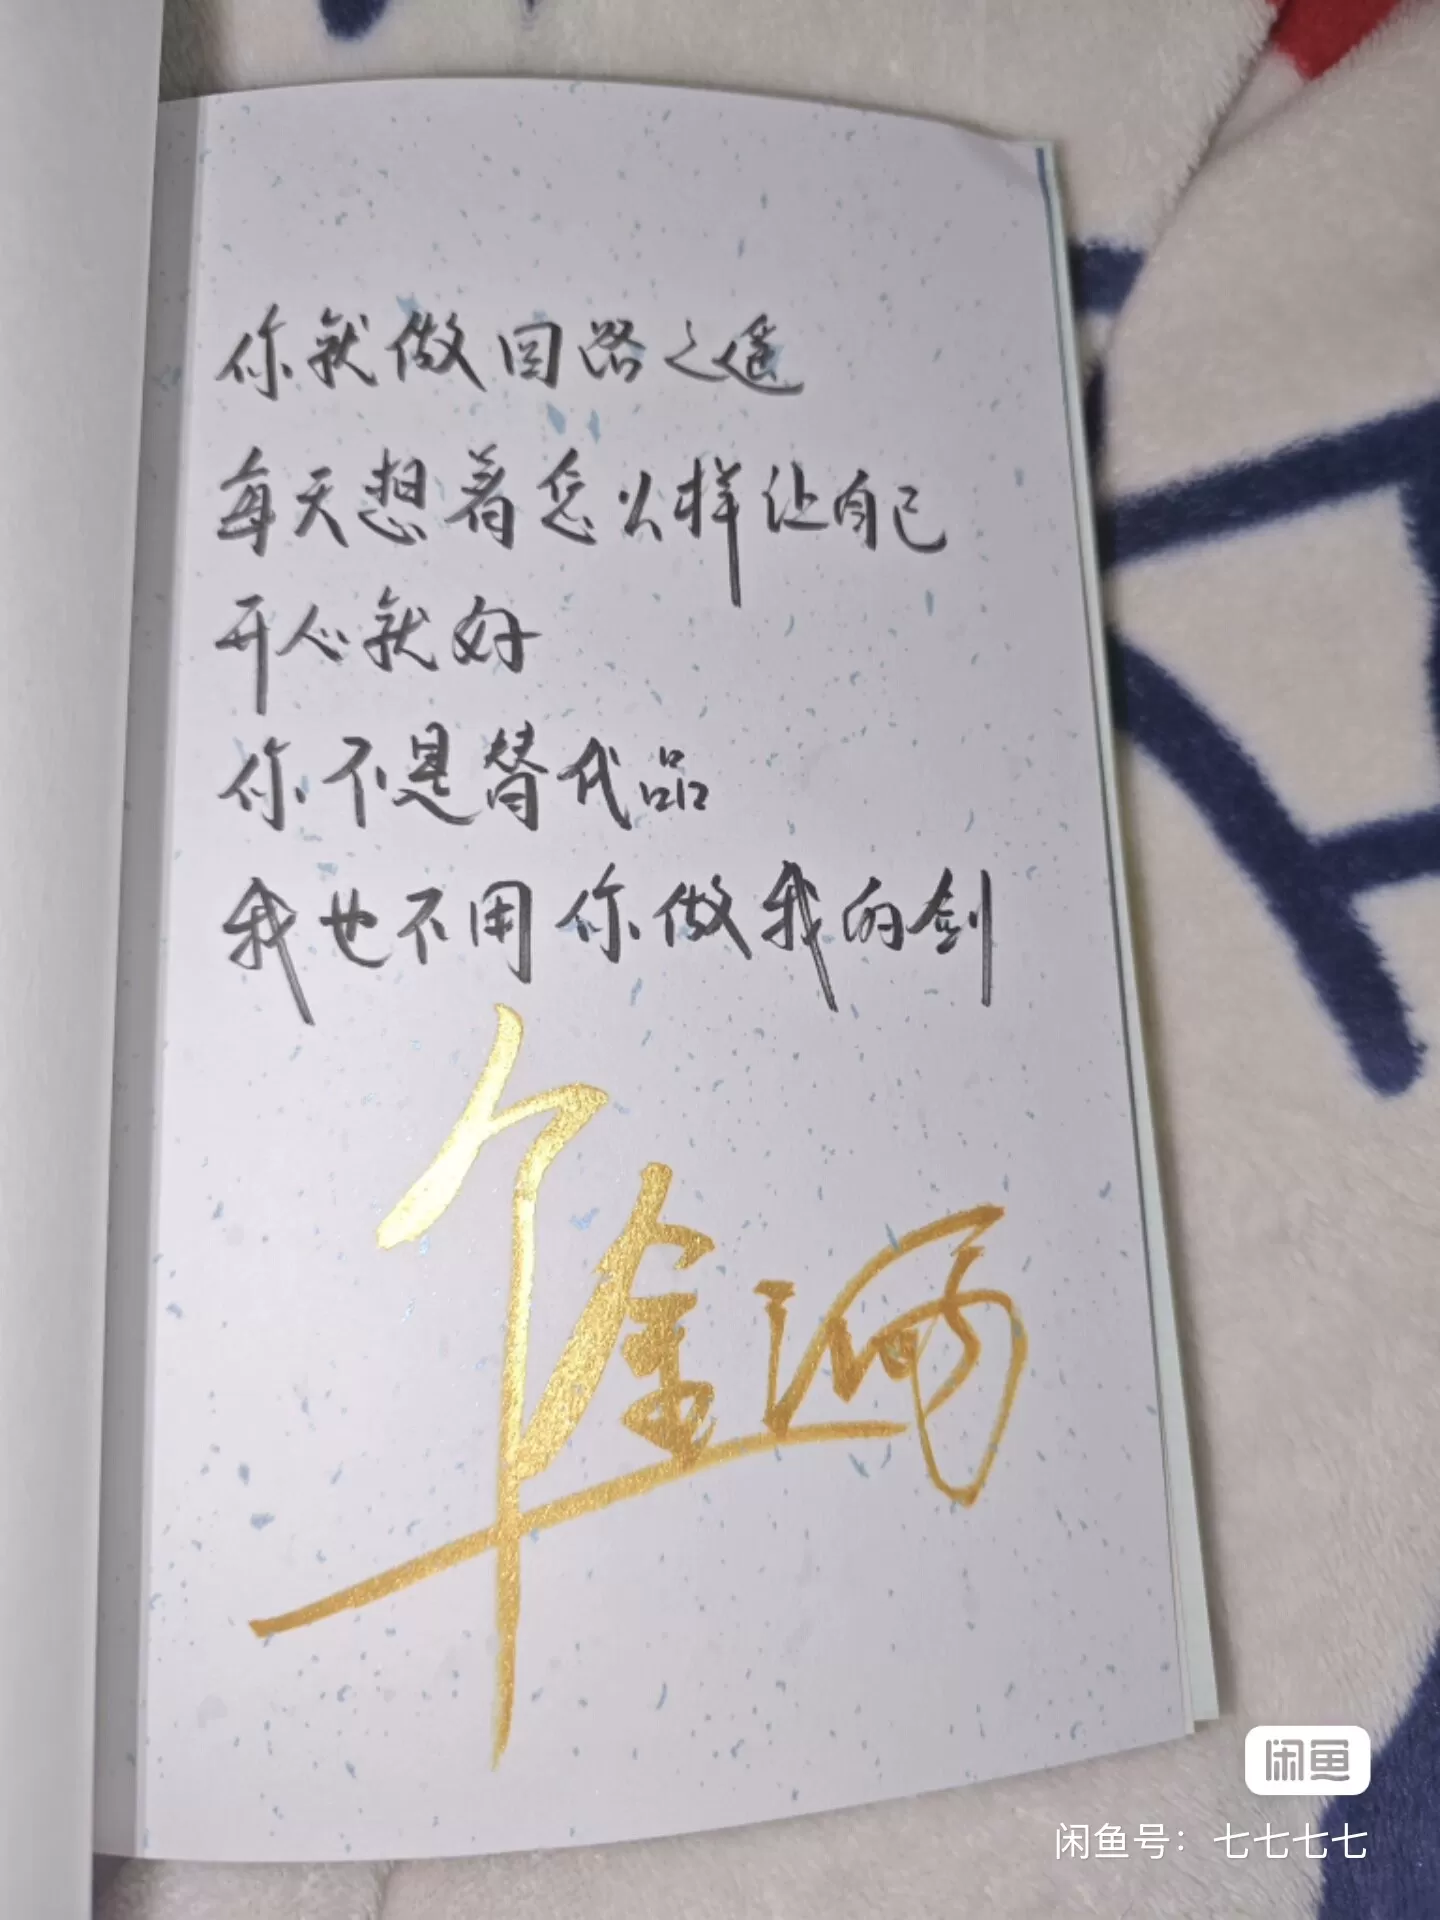 你就做回路之遥
每天想着怎么样让自己
开心就好
你不是替代品
我也不用你做我的剑
闲鱼
闲鱼号：七七七七